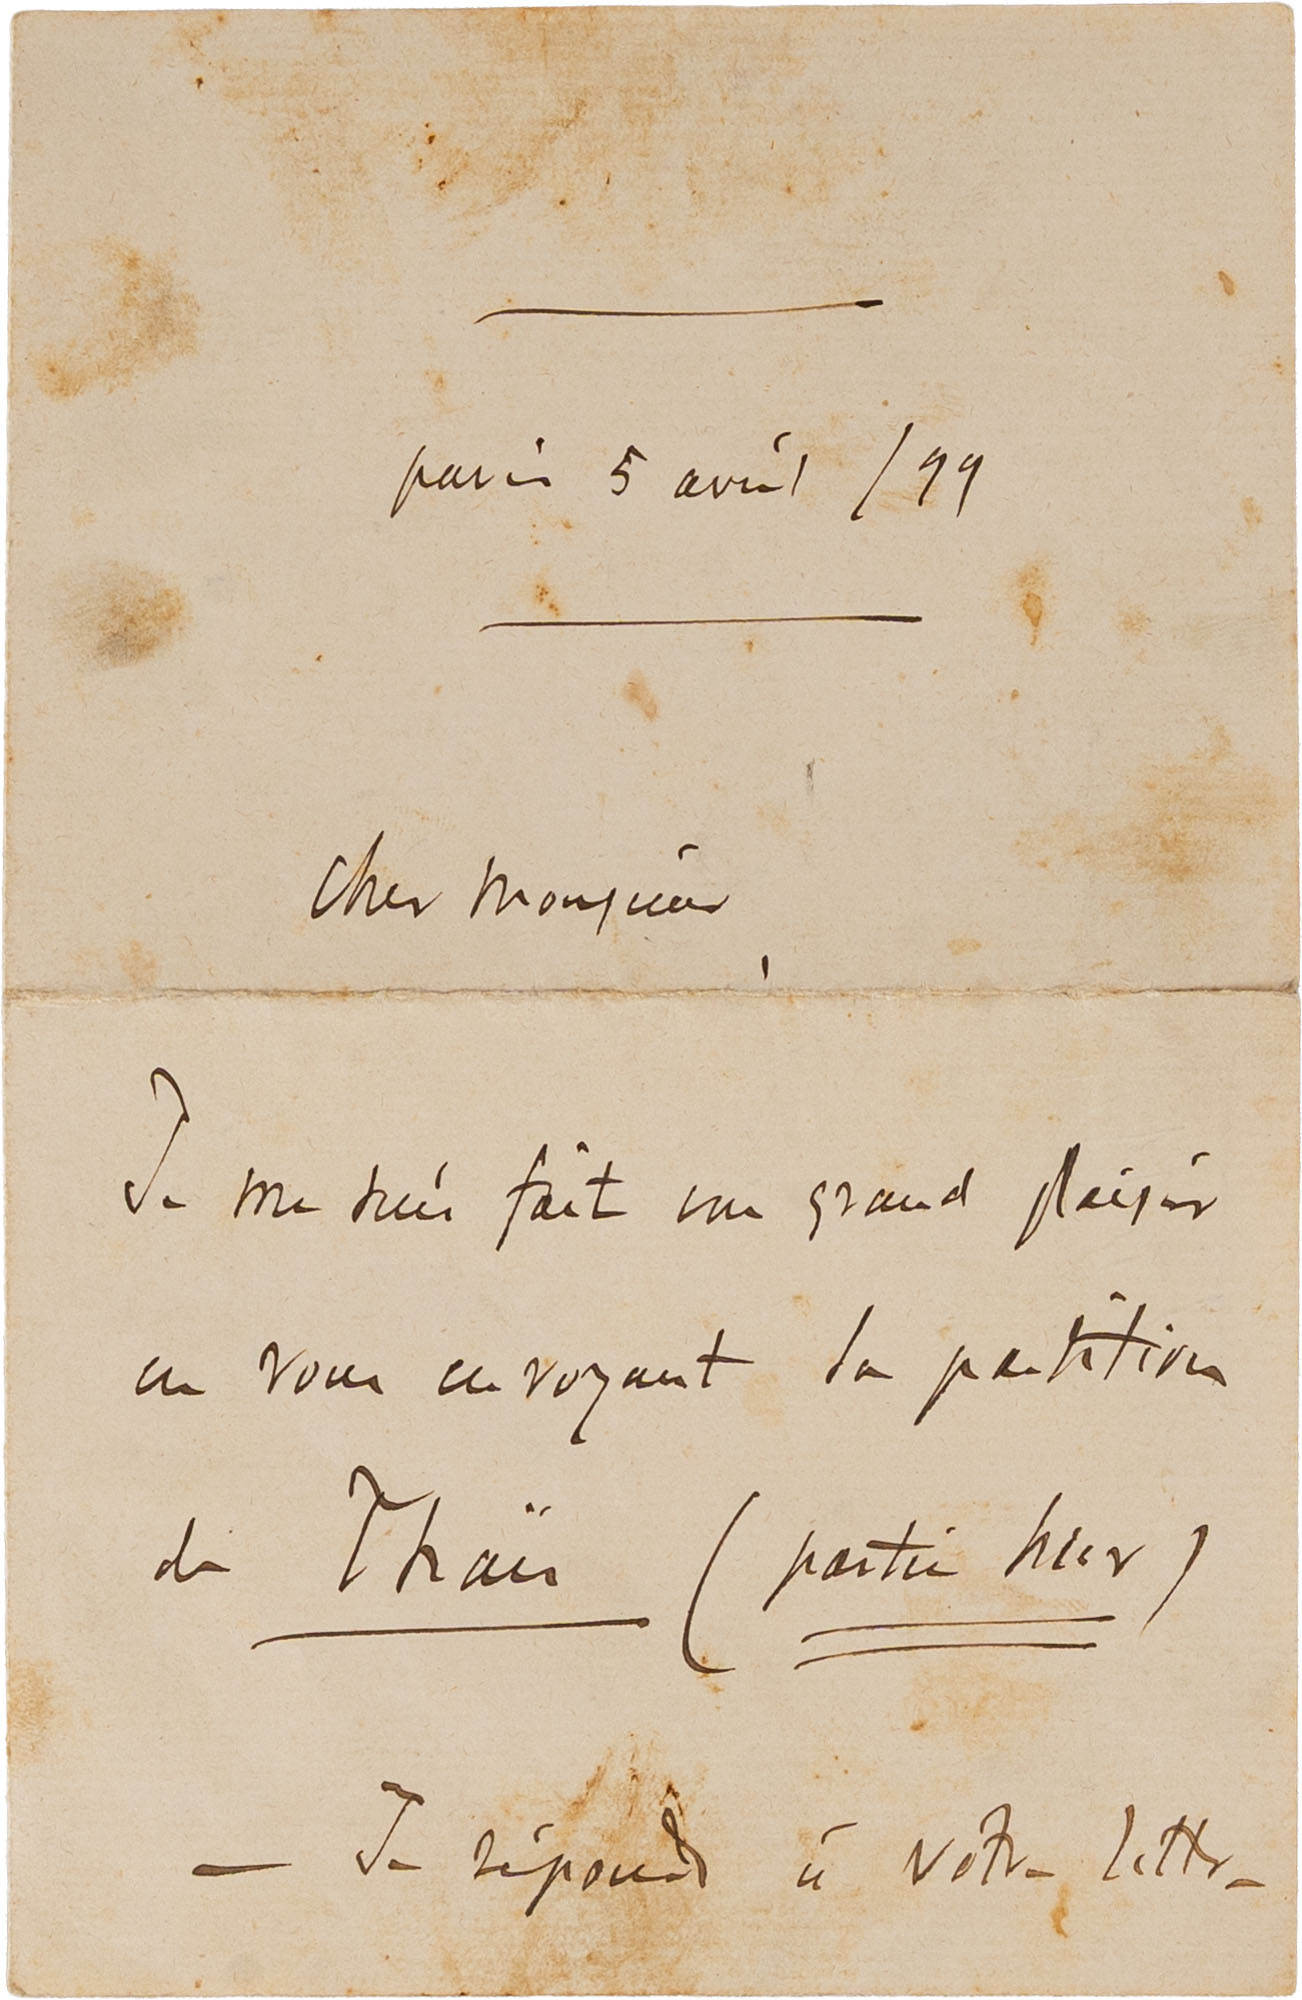 paris 5 avril /99
Cher Monsieur,
Je me suis fait un grand plaisir
en vous envoyant la partition
de Thaïs (partie hier)
— Je réponds à votre lettre